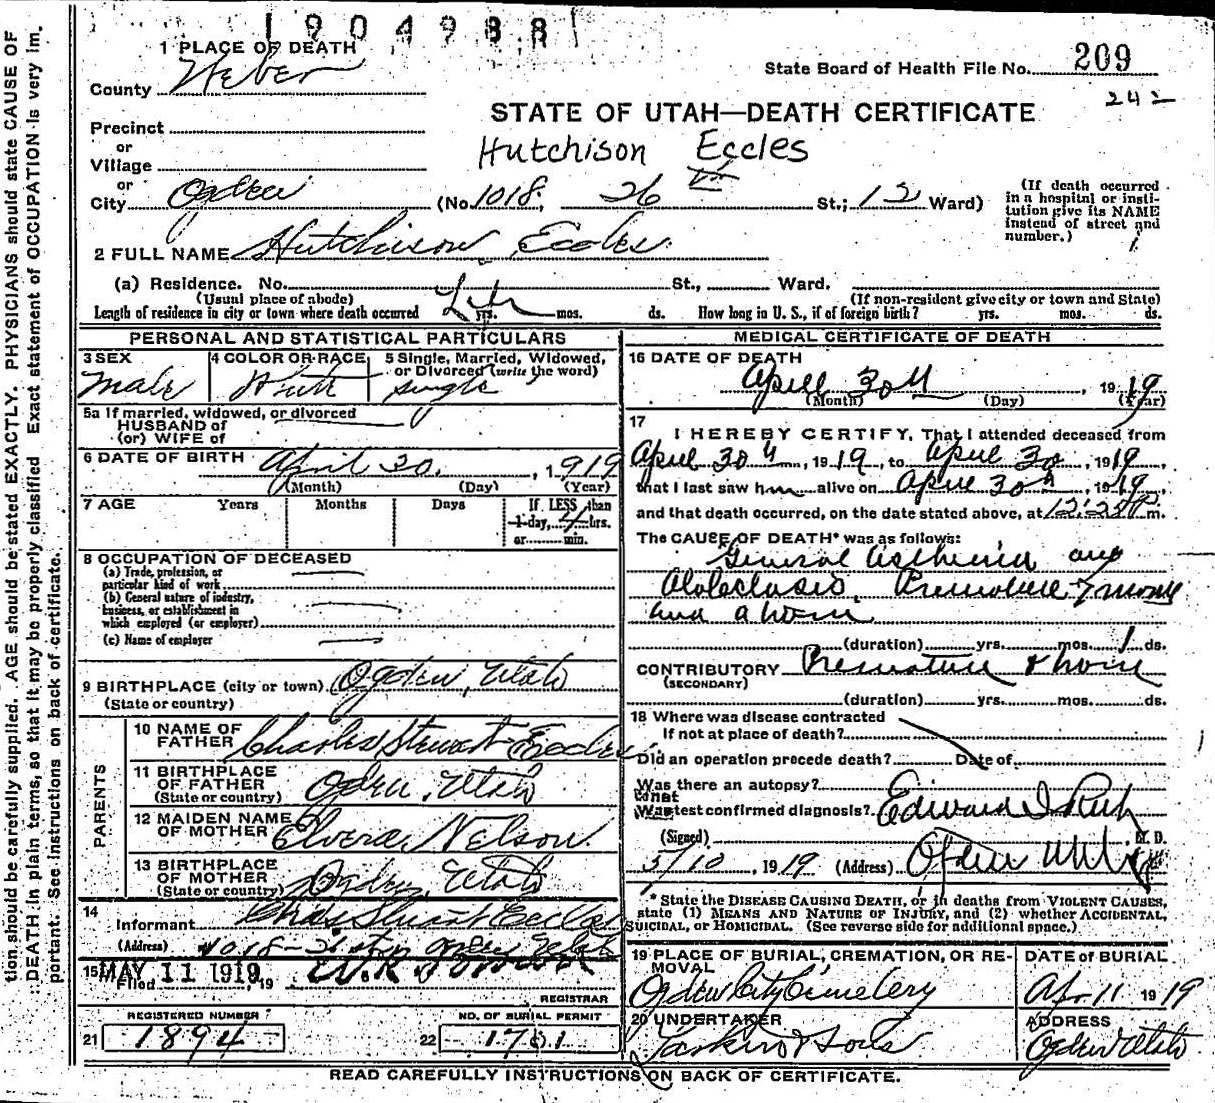 1904988
1 PLACE OF DEATH
County Weber
State Board of Health File No. 209
242
STATE OF UTAH—DEATH CERTIFICATE
Precinct
or
Village
Hutchison Eccles
or
City Ogden (No. 1018, 26 St.; 12 Ward)
(If death occurred in a hospital or institution give its NAME instead of street and number.)
2 FULL NAME Hutchison Eccles.
(a) Residence. No. St., Ward.
(Usual place of abode) (If non-resident give city or town and State)
Length of residence in city or town where death occurred Life yrs. mos. ds. How long in U. S., if of foreign birth? yrs. mos. ds.
PERSONAL AND STATISTICAL PARTICULARS
3 SEX Male
4 COLOR OR RACE White
5 Single, Married, Widowed, or Divorced (write the word) Single
5a If married, widowed, or divorced
HUSBAND of
(or) WIFE of
6 DATE OF BIRTH April 30. 1919
(Month) (Day) (Year)
7 AGE Years Months Days If LESS than
1 day, 4 hrs.
or min.
8 OCCUPATION OF DECEASED
(a) Trade, profession, or
particular kind of work
(b) General nature of industry,
business, or establishment in
which employed (or employer)
(c) Name of employer
9 BIRTHPLACE (city or town) Ogden, Utah
(State or country)
PARENTS
10 NAME OF FATHER Charles Stewart Eccles
11 BIRTHPLACE OF FATHER Ogden, Utah
(State or country)
12 MAIDEN NAME OF MOTHER Elvera Nelson.
13 BIRTHPLACE OF MOTHER Ogden, Utah
(State or country)
14
Informant Chas Stuart Eccles
(Address) 1018- Ogden Utah
15 MAY 11 1919
Filed , 19
REGISTRAR
REGISTERED NUMBER
21 1894
NO. OF BURIAL PERMIT
22 1761
MEDICAL CERTIFICATE OF DEATH
16 DATE OF DEATH
April 30th, 1919
(Month) (Day) (Year)
17
I HEREBY CERTIFY, That I attended deceased from
April 30th, 1919, to April 30, 1919,
that I last saw him alive on April 30th, 1919,
and that death occurred, on the date stated above, at m.
The CAUSE OF DEATH* was as follows:
General Asthenia and
Atelectasis. Premature 7 months
(duration) yrs. mos. 1 ds.
CONTRIBUTORY Premature
(SECONDARY)
(duration) yrs. mos. ds.
18 Where was disease contracted
If not at place of death?
Did an operation precede death? Date of
Was there an autopsy?
What test confirmed diagnosis?
(Signed) Edward I Rich M. D.
5/10, 1919 (Address) Ogden Utah
* State the DISEASE CAUSING DEATH, or in deaths from VIOLENT CAUSES,
state (1) MEANS AND NATURE OF INJURY, and (2) whether ACCIDENTAL,
SUICIDAL, or HOMICIDAL. (See reverse side for additional space.)
19 PLACE OF BURIAL, CREMATION, OR REMOVAL
Ogden City Cemetery
DATE of BURIAL
Apr 11 1919
20 UNDERTAKER
Larkin & Sons
ADDRESS
Ogden Utah
READ CAREFULLY INSTRUCTIONS ON BACK OF CERTIFICATE.
tion should be carefully supplied. AGE should be stated EXACTLY. PHYSICIANS should state CAUSE OF
DEATH in plain terms, so that it may be properly classified. Exact statement of OCCUPATION is very im.
portant. See instructions on back of certificate.